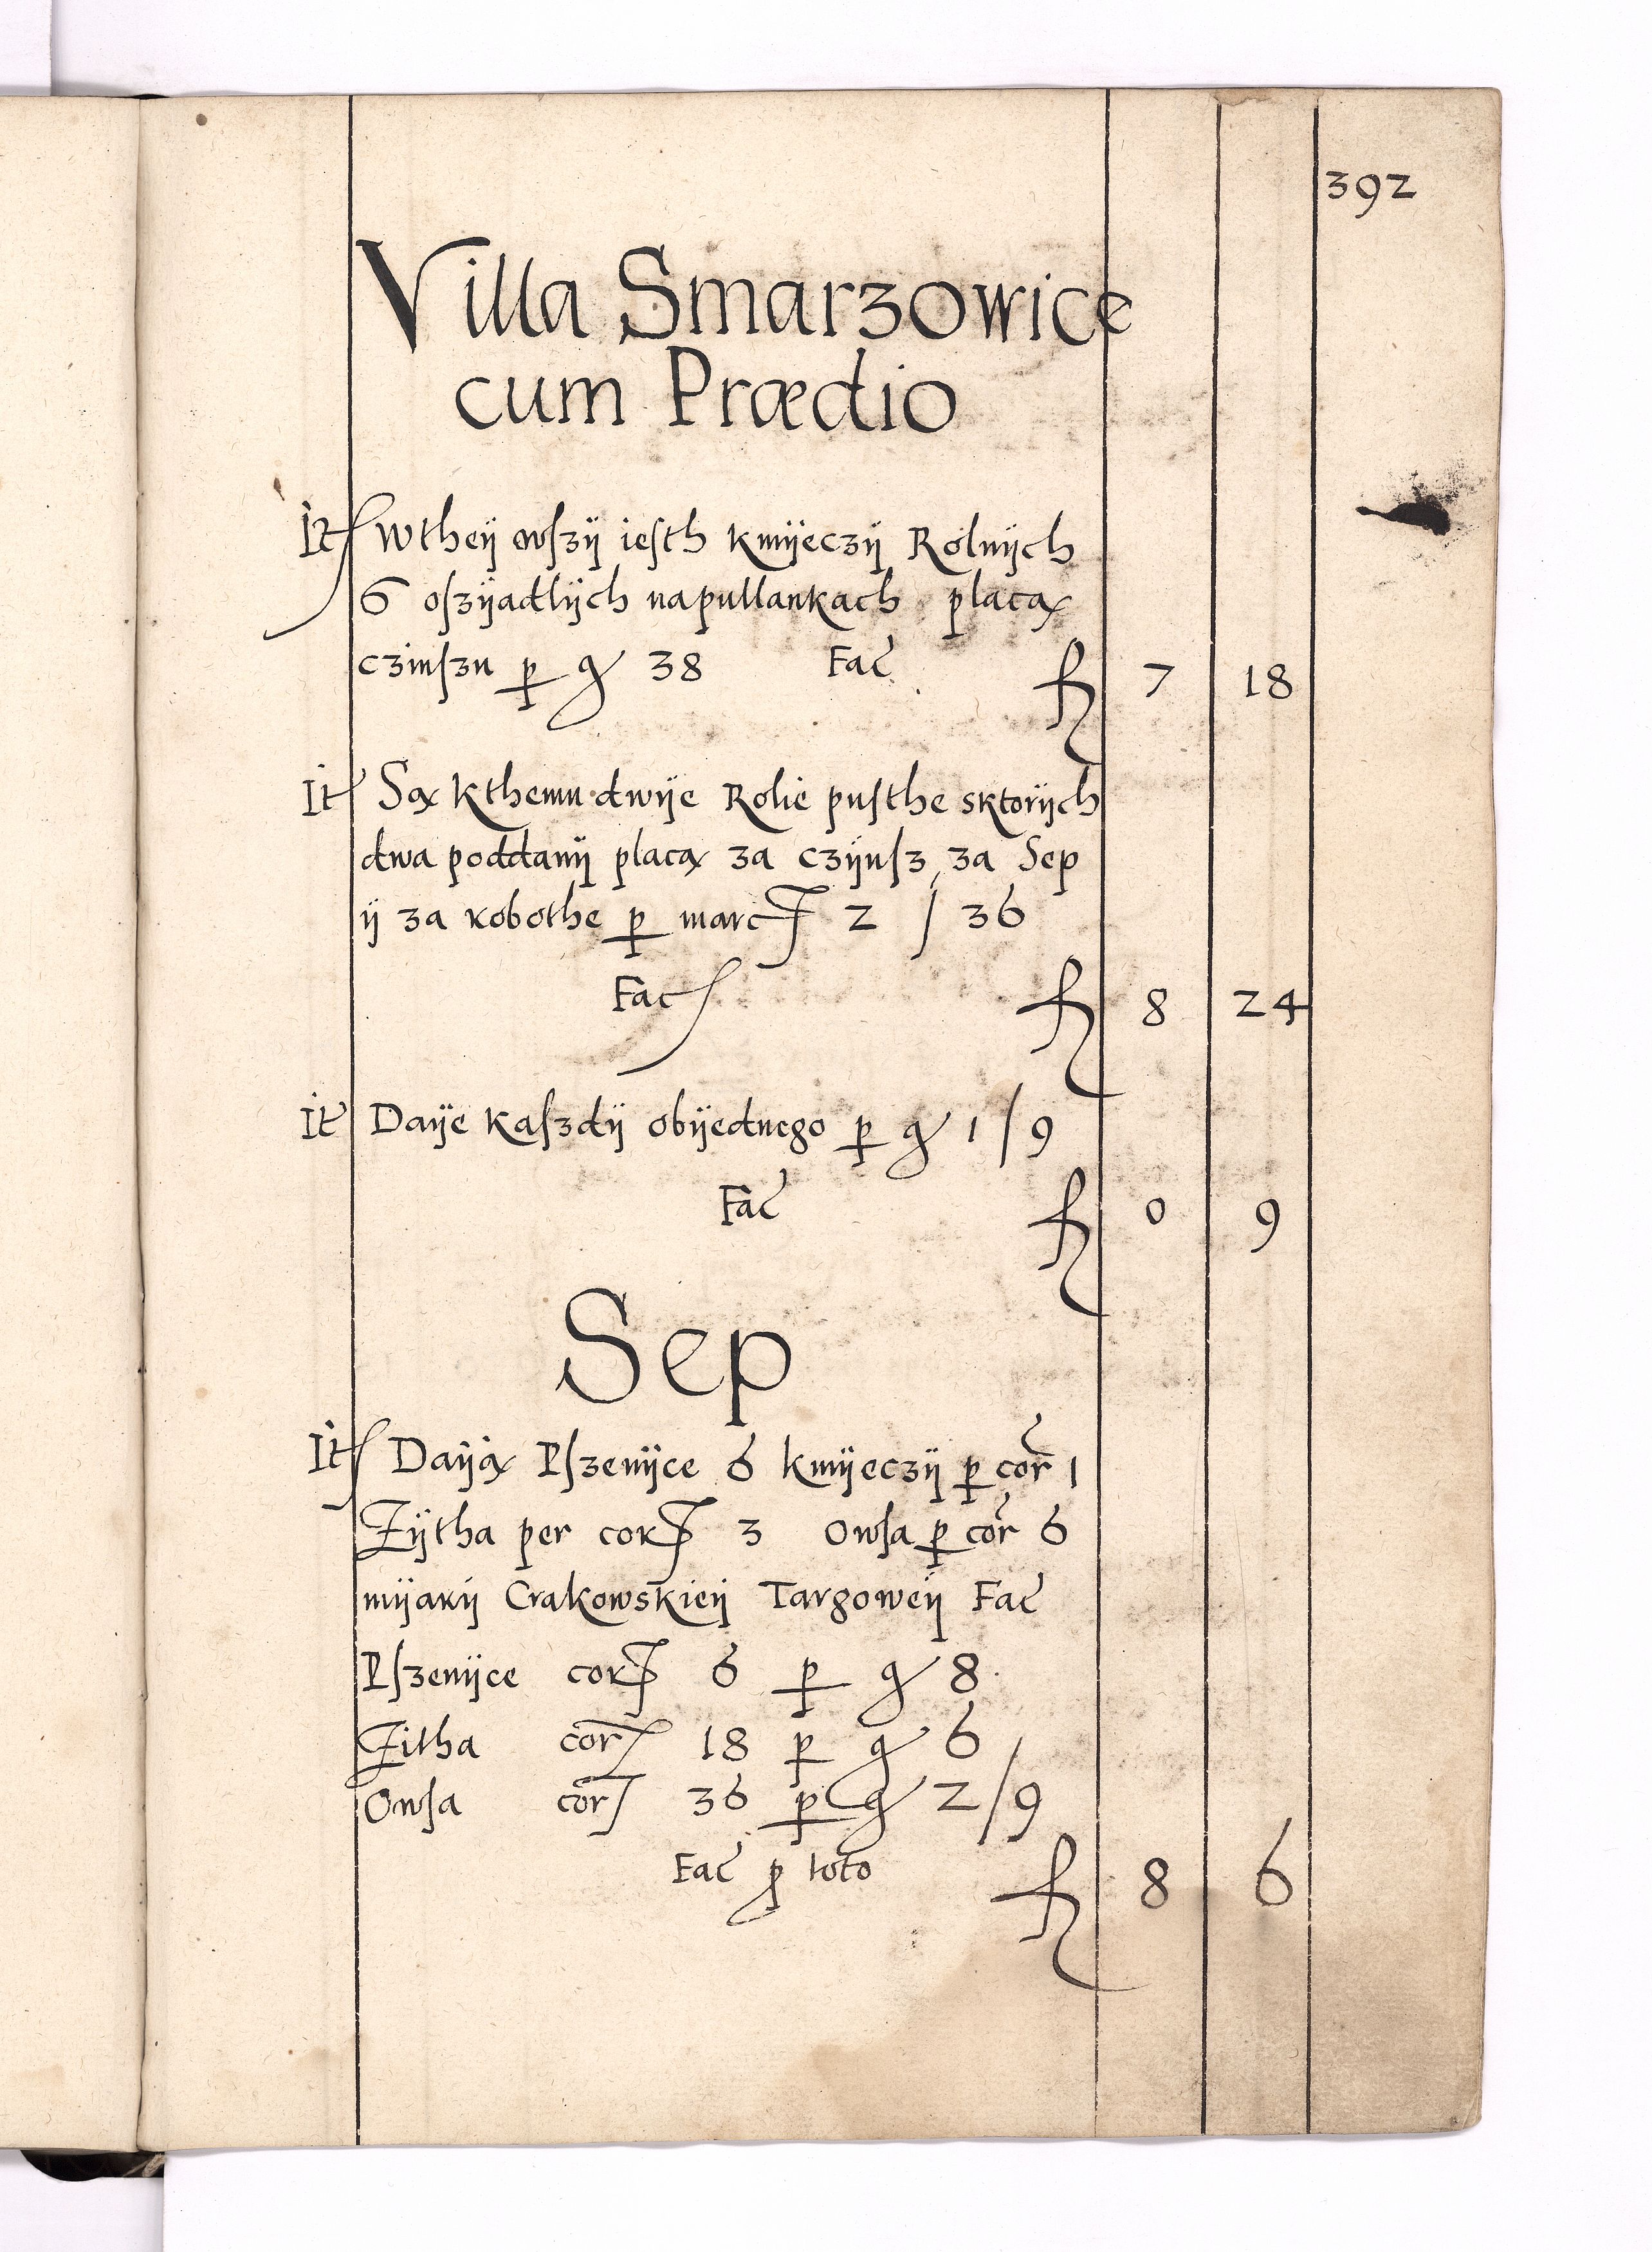 392
Villa Smarzowice
cum Prædio
It Wtheÿ wſzÿ ieſth kmÿeczÿ Rolnÿch
6 oſzÿadlÿch napullankach placą
czinſzu p gr 38 Fac fl 7 18
It Są kthemu dwÿe Rolie puſthe sktorÿch
dwa poddanÿ placą za czÿnſz, za Sep
ÿ za robothe p marc 2 / 36
Fac fl 8 24
It Daÿe kaſzdÿ obÿednego p gr 1 / 9
Fac fl 0 9
Sep
It Daÿą Pſzenÿce 6 kmÿeczÿ p cor 1
Zÿtha per cor 3 Owſa p cor 6
mÿarÿ Crakowskieÿ Targoweÿ Fac
Pſzenÿce cor 6 p gr 8
Zitha cor 18 p gr 6
Owſa cor 36 p gr 2 / 9
Fac p toto fl 8 6